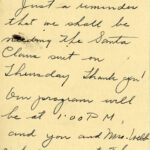 Just a reminder
that we shall be
needing the Santa
Claus suit on
Thursday Thank you!
Our program will
be at 1:00 P.M.,
and you and Mrs.